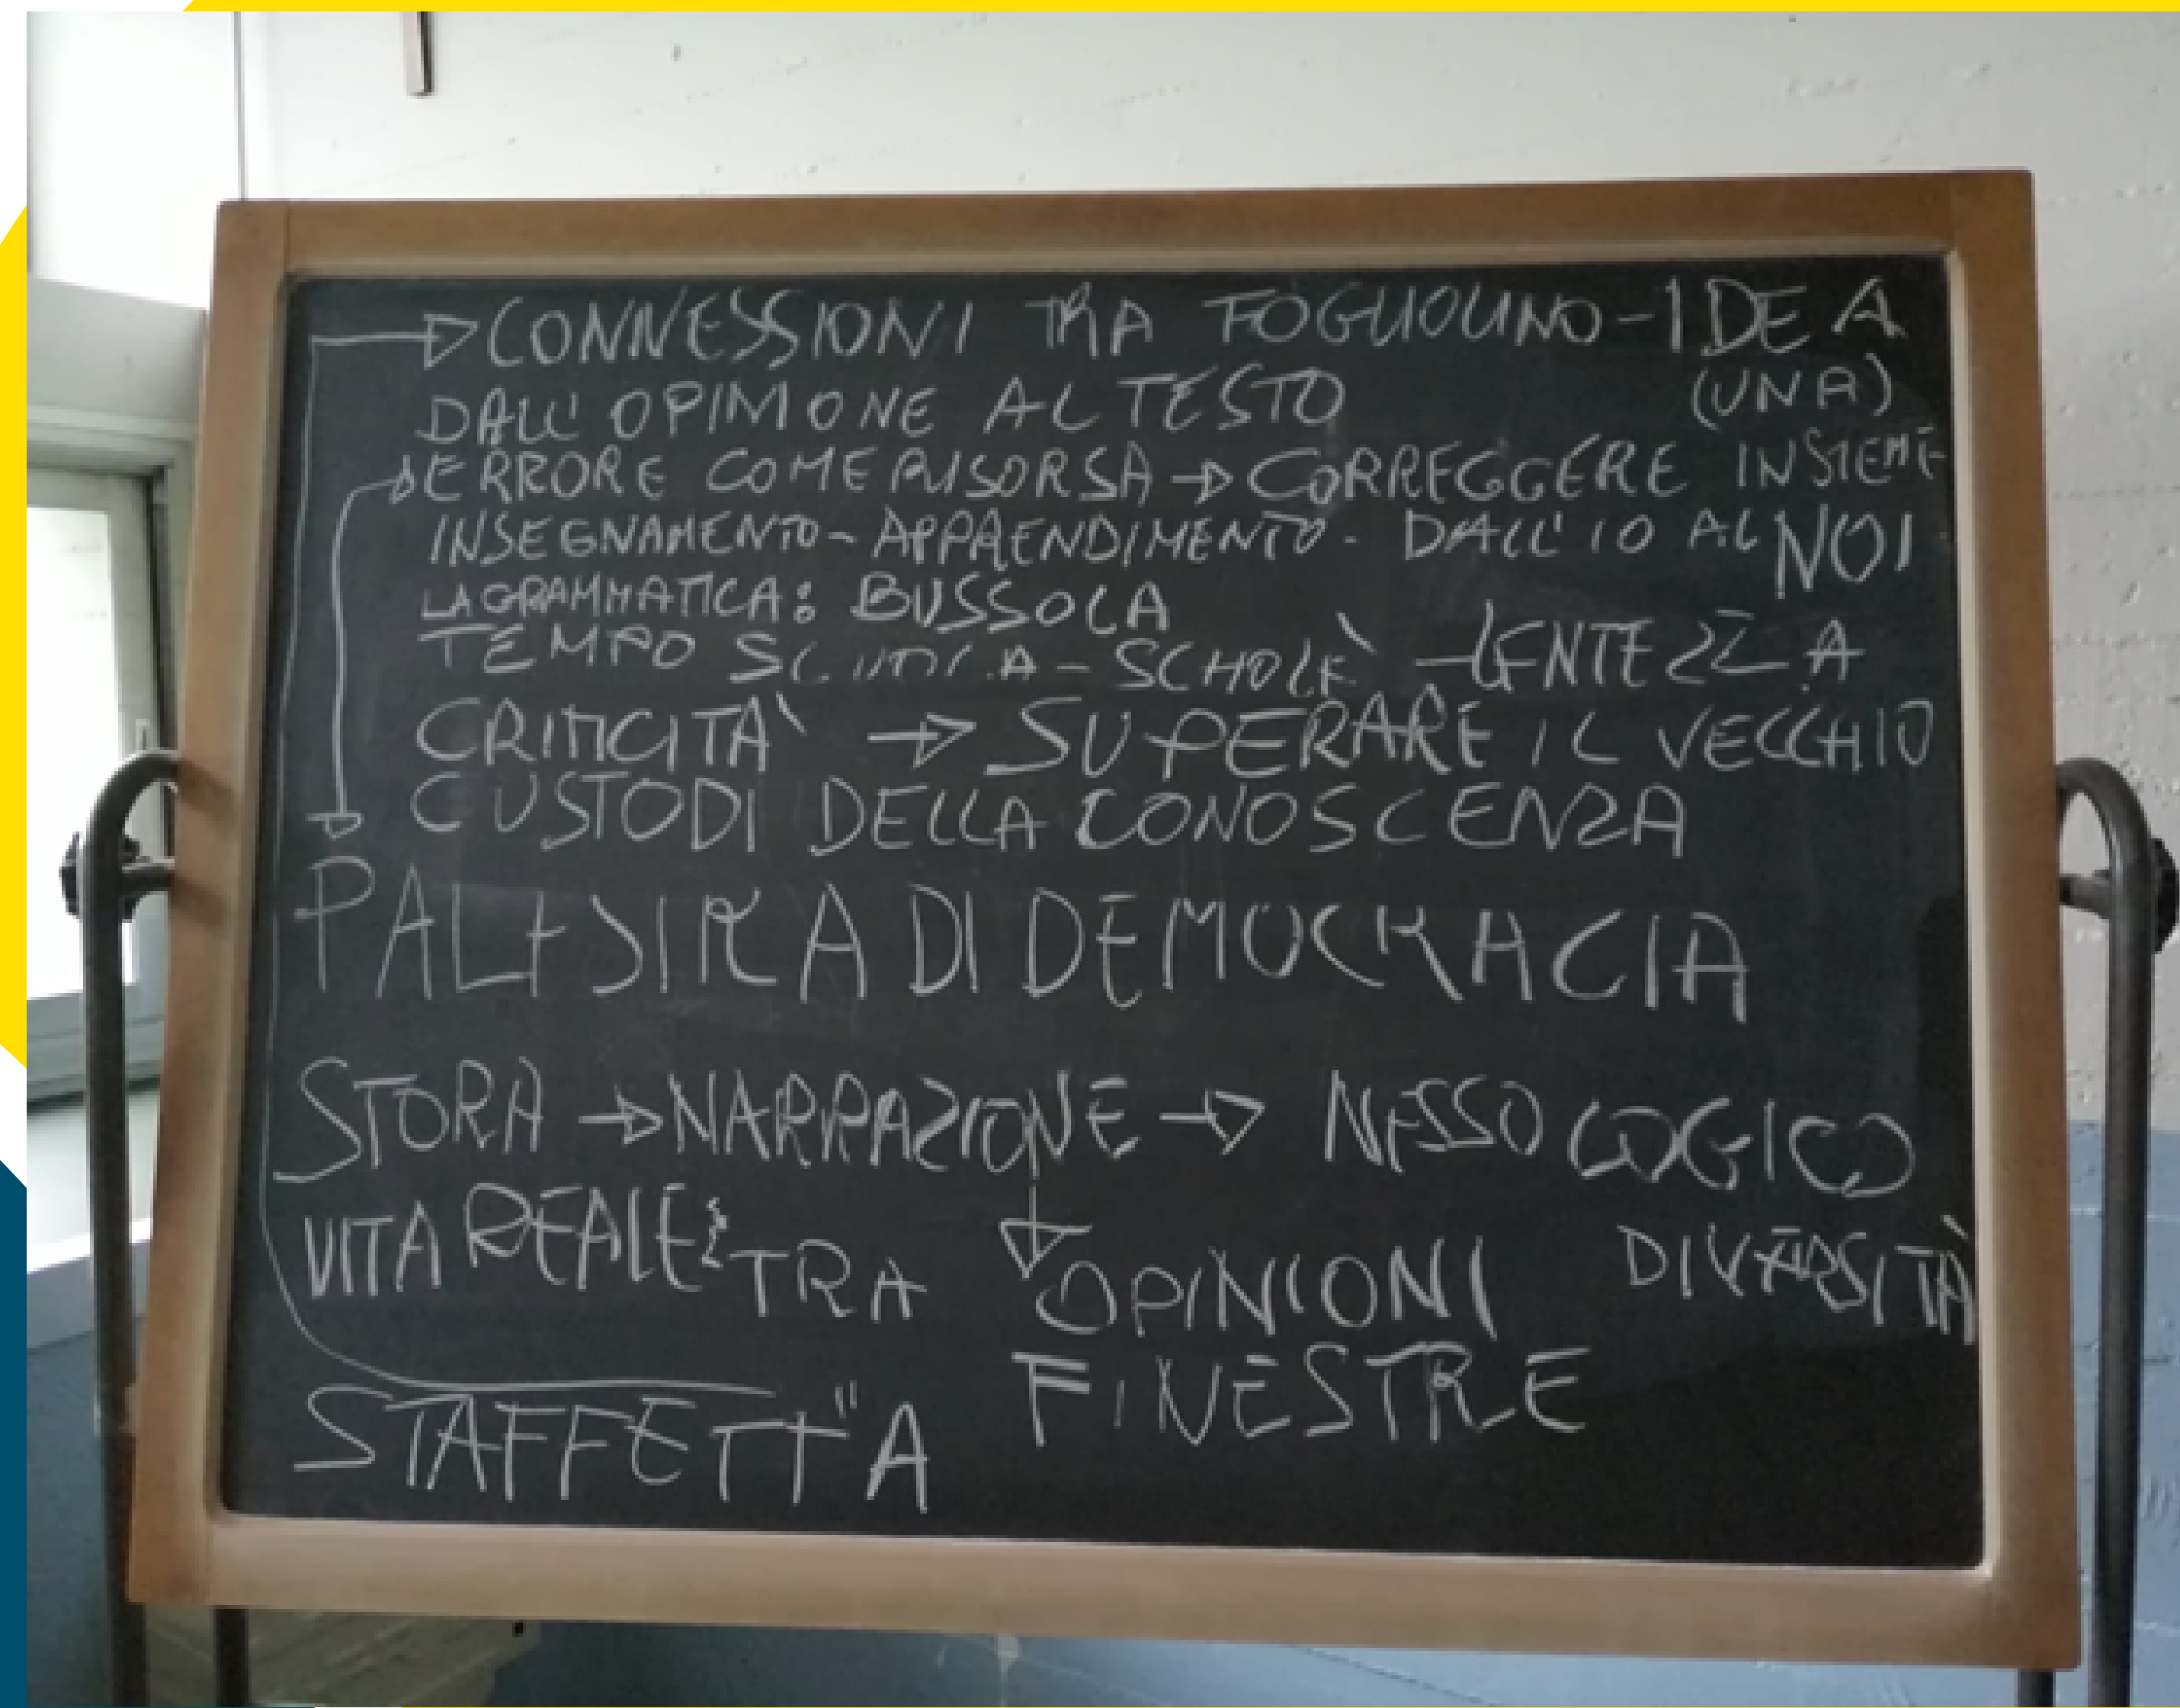 → CONNESSIONI TRA FOGLIOLINO - IDEA
(UNA)
DALL' OPINIONE AL TESTO
→ ERRORE COME RISORSA → CORREGGERE INSIEME
INSEGNAMENTO - APPRENDIMENTO - DALL' IO AL NOI
LA GRAMMATICA: BUSSOLA
TEMPO - SCHOLÈ - LENTEZZA
CRITICITÀ → SUPERARE IL VECCHIO
CUSTODI DELLA CONOSCENZA
PALESTRA DI DEMOCRACIA
STORA → NARRAZIONE → NESSO LOGICO
VITA REALE TRA OPINIONI DIVERSITÀ
FINESTRE
STAFFETTA